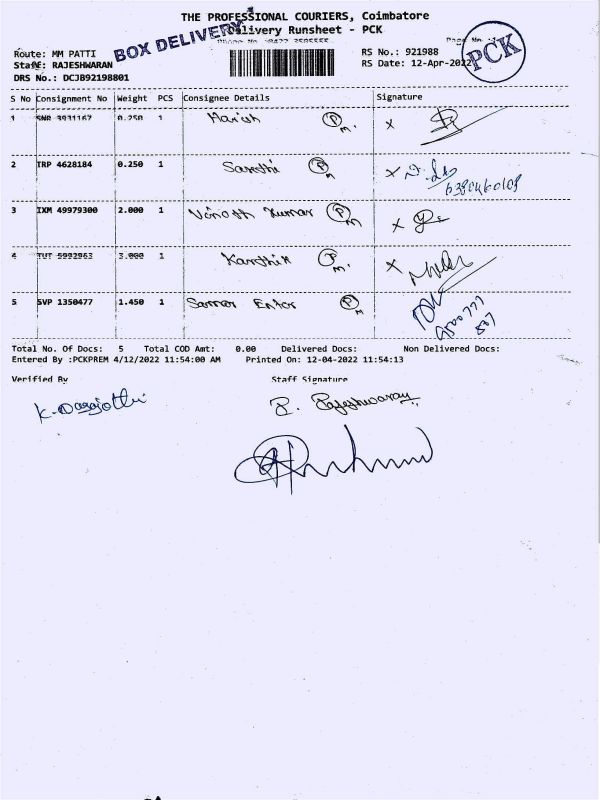 THE PROFESSIONAL COURIERS, Coimbatore
Delivery Runsheet - PCK
BOX DELIVERY
PCK
Route: MM PATTI
RS No.: 921988
Staff: RAJESHWARAN
RS Date: 12-Apr-2022
DRS No.: DCJB92198801
S No Consignment No Weight PCS Consignee Details Signature
1 SNR 3931167 0.250 1 Harish PM.
2 TRP 4628184 0.250 1 PM
3 IXM 49979300 2.000 1 Vinoth Kumar PM
4 TUT 5992963 3.000 1 Karthik PM.
5 SVP 1350477 1.450 1 PM
Total No. Of Docs: 5 Total COD Amt: 0.00 Delivered Docs: Non Delivered Docs:
Entered By :PCKPREM 4/12/2022 11:54:00 AM Printed On: 12-04-2022 11:54:13
Verified By Staff Signature
P. Rajeshwaran